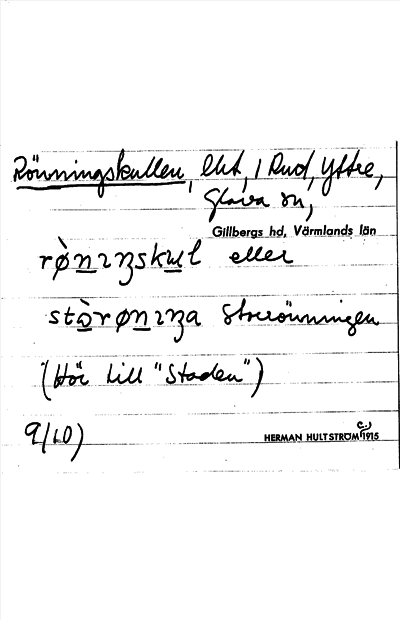 Rönningskullen, lht, 1 Rud, Yttre,
Glava sn,
Gillbergs hd, Värmlands län
rǿnıŋskul eller
stòrønıŋa Storrönningen
(Hör till "Staden")
HERMAN HULTSTRÖM C:a 1915